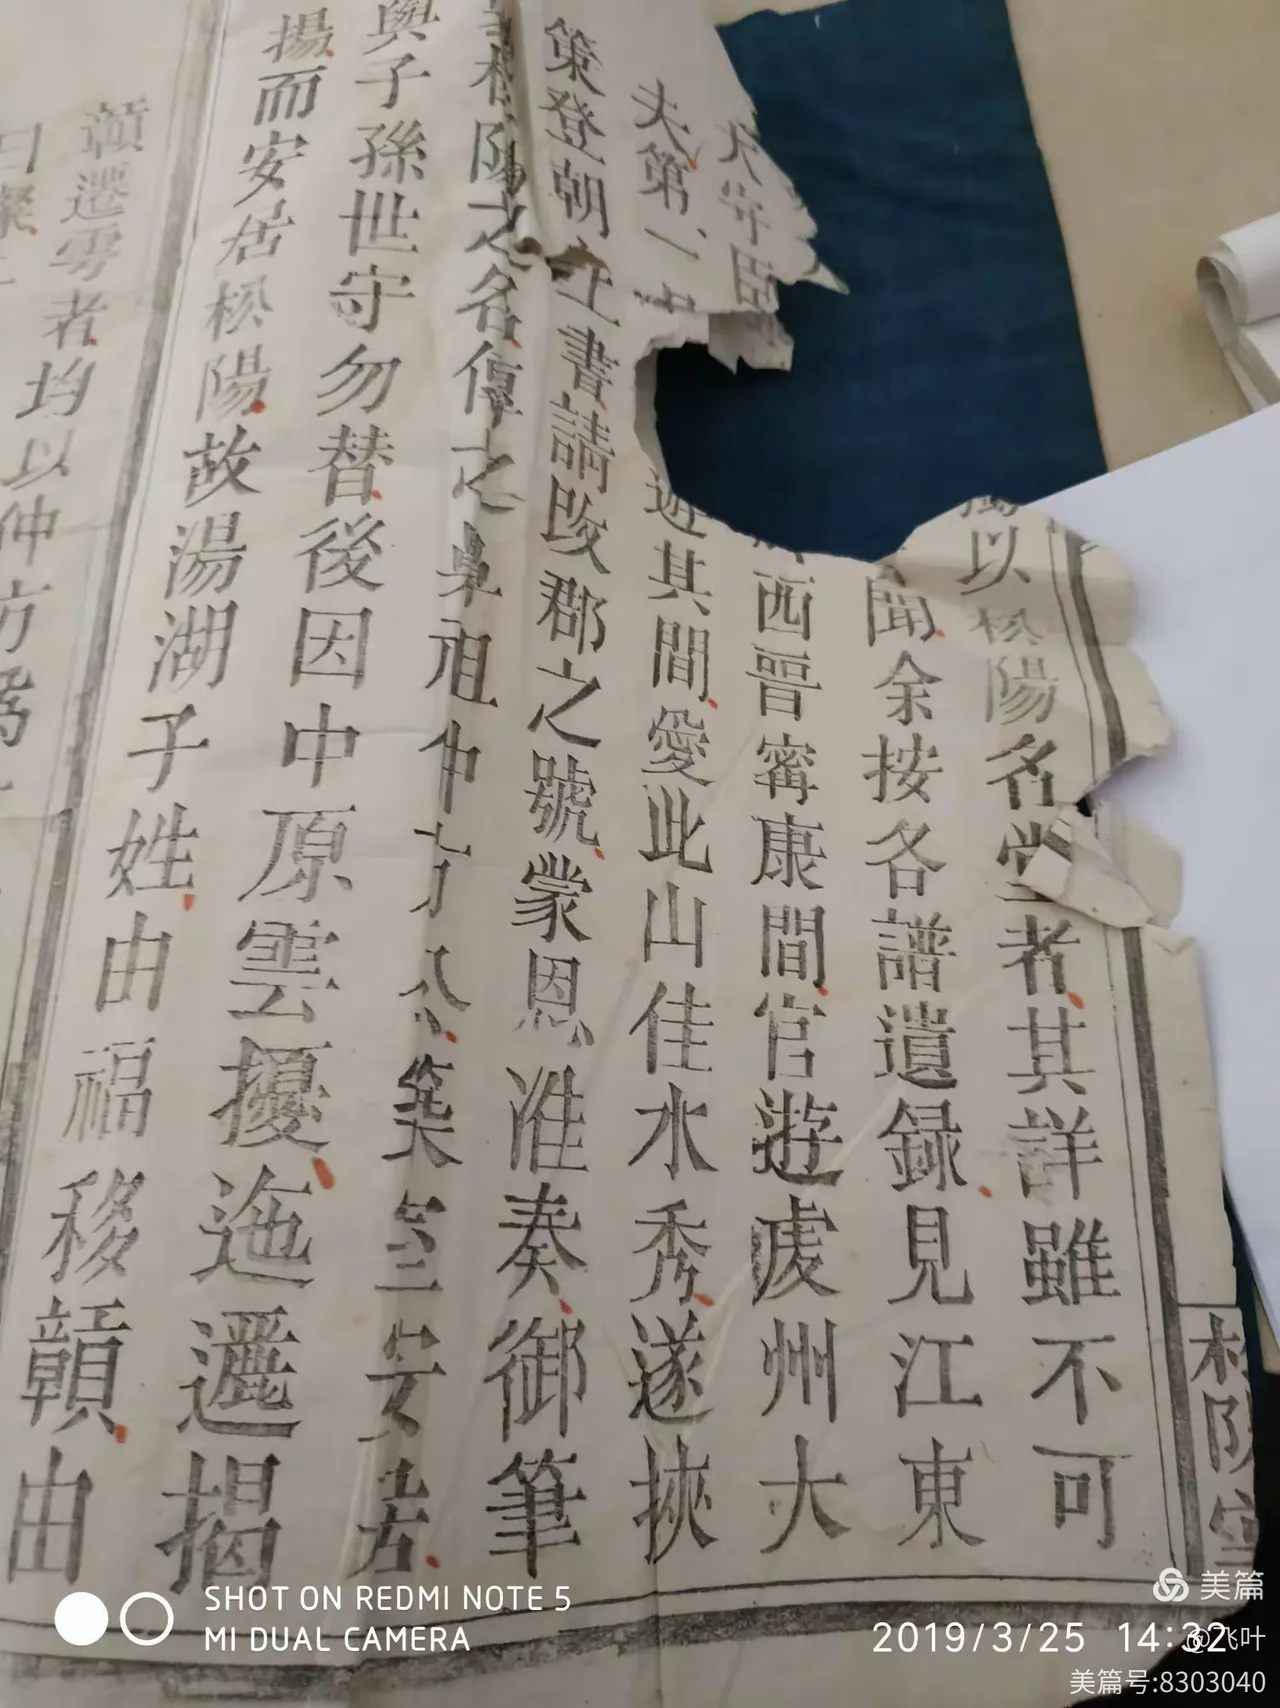 以松陽名堂者其詳雖不可
聞余按各譜遺録見江東
西晉寗康間官遊處州大
夫第一
遊其間愛此山佳水秀遂挾
策登朝上書請改郡之號蒙恩准奏御筆
松陽之名傳之鼻祖仲方公築室安居
與子孫世守勿替後因中原雲擾迤邐揭
揚而安居松陽故湯湖子姓由福移贛由
贛遷雩者均以仲方爲
曰
SHOT ON REDMI NOTE 5
MI DUAL CAMERA
美篇
2019/3/25 14:32
@飞叶
美篇号:8303040